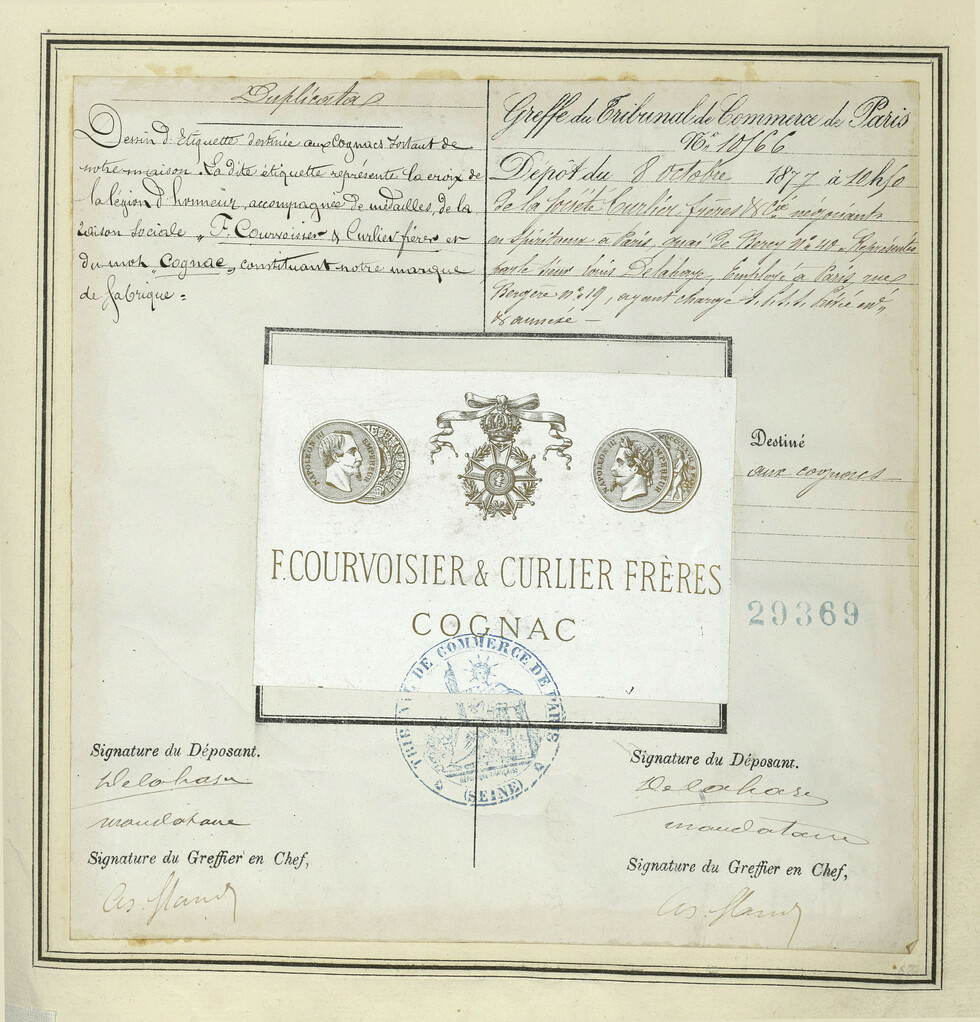 Duplicata
Dessin d'Etiquette destinée aux Cognacs sortant de
notre maison. La dite étiquette représente la croix de
la légion d'honneur, accompagnée de médailles, de la
raison sociale "F. Courvoisier & Curlier frères et
du mot "Cognac", constituant notre marque
de fabrique =
Greffe du Tribunal de Commerce de Paris
No. 10166
Dépôt du 8 octobre 1877 à 10h50
de la société Curlier frères & Cie négociants
en spiritueux à Paris, quai de Bercy No 40. Représentée
par le sieur Louis Delahaye, Employé à Paris, rue
Bergère no 19, ayant charge
& annexé —
NAPOLEON III EMPEREUR
NAPOLEON III EMPEREUR
F. COURVOISIER & CURLIER FRÈRES
COGNAC
Destiné
aux cognacs
29369
TRIBUNAL DE COMMERCE DE PARIS
RÉPUBLIQUE FRANÇAISE
(SEINE)
Signature du Déposant.
mandataire
Signature du Greffier en Chef,
Signature du Déposant.
mandataire
Signature du Greffier en Chef,